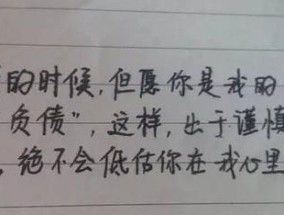 的时候,但愿你是我的
负债”,这样,出于谨慎
绝不会低估你在我心里